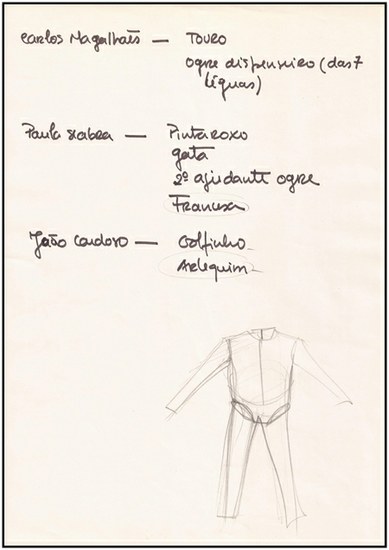 Carlos Magalhães — TOURO
ogre dispenseiro (das 7
léguas)
Paula Seabra — Pintaroxo
gata
2º ajudante ogre
Francesa
João Cardoso — Golfinho
Arlequim